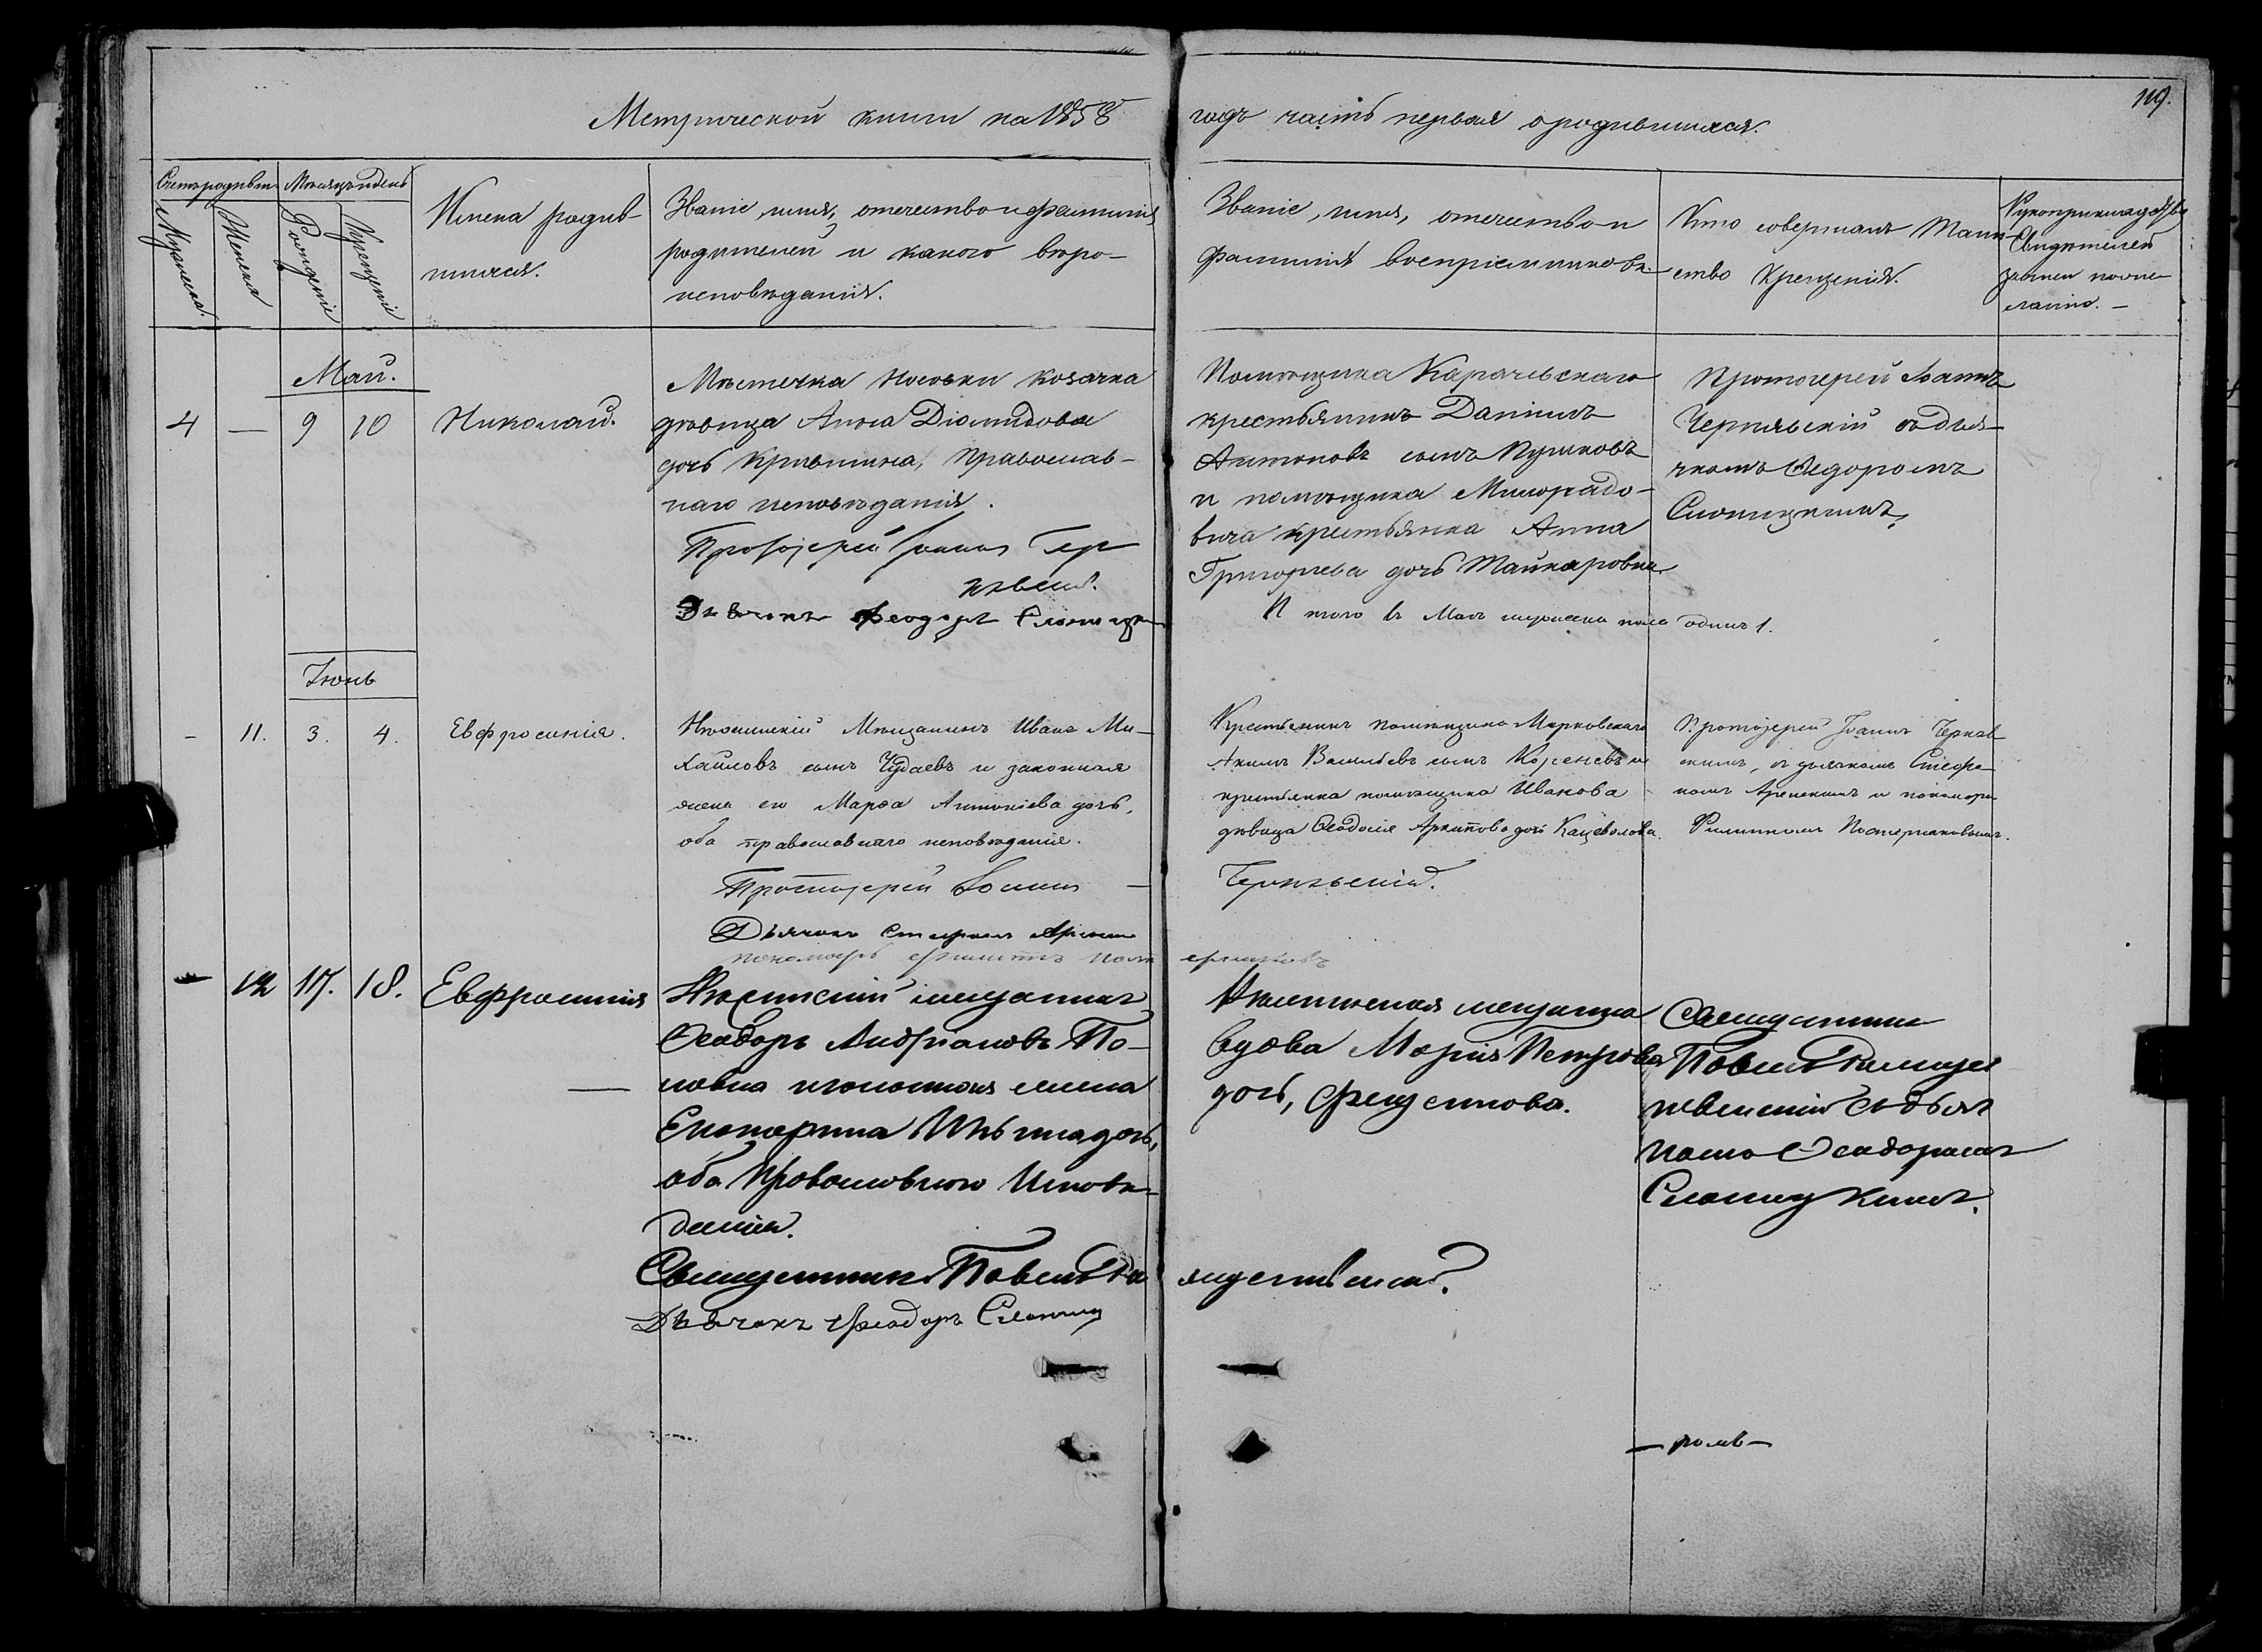 119.
Метрической книги на 1858 годъ часть первая о родившихся.
Счетъ родивш.
Мѣсяцъ и день
Мужеска
Женска
Рожденіе
Крещеніе
Имена родив-
шихся.
Званіе, имя, отечество и фамилія
родителей и какого вѣро-
исповѣданія.
Званіе, имя, отечество и
фамилія воспріемниковъ.
Кто совершалъ Таин-
ство Крещенія.
Рукоприкладство
Свидетелей
записи по же-
ланію.
Май.
4 — 9 10 Николай.
Мѣстечка Носовки козачка
дѣвица Анна Діомидова
дочь Крившина, Православ-
наго исповѣданія.
Протоіерей Іоаннъ Чер
нявскій.
Дьячокъ Феодоръ Слоницк
Помѣщика Карачевскаго
крестьянинъ Даніилъ
Антоновъ сынъ Пушковъ
и помѣщика Милорадо-
вича крестьянка Анна
Григорьева дочь Майкаровна.
Итого въ Маѣ мужеска пола одинъ 1.
Протоіерей Іоаннъ
Чернявскій съ дья-
чкомъ Ѳедоромъ
Слоницкимъ.
Іюнь
— 11. 3. 4. Евфросинія.
Нѣжинскій Мѣщанинъ Иванъ Ми-
хайловъ сынъ Чудаевъ и законная
жена его Марѳа Антоніева дочь,
оба православнаго исповѣданія.
Протоіерей Іоаннъ — Чернявскій.
Дьячокъ Стефанъ
пономарь Филиппъ
Крестьянинъ помѣщика Марковскаго
Акимъ Васильевъ сынъ Кореневъ и
крестьянка помѣщика Иванова
дѣвица Ѳеодосія Архипова дочь Кацеволова.
Протоіерей Іоаннъ Черняв-
скимъ, съ дьячкомъ Стефа-
номъ и пономаремъ
Филиппомъ
— 12 17. 18. Евфросинія
Нѣжинскій мещанинъ
Ѳеодоръ Андріановъ По-
повъ и законная жена
Екатерина Ильина дочь,
оба Православного Исповѣ-
данія.
Священникъ Павелъ
Дьячокъ Феодоръ Слониц
Нѣжинская мещанка
вдова Марія Петрова
дочь,
Священникъ
Павелъ
съ дьяч
комъ Ѳеодоромъ
Слоницкимъ.